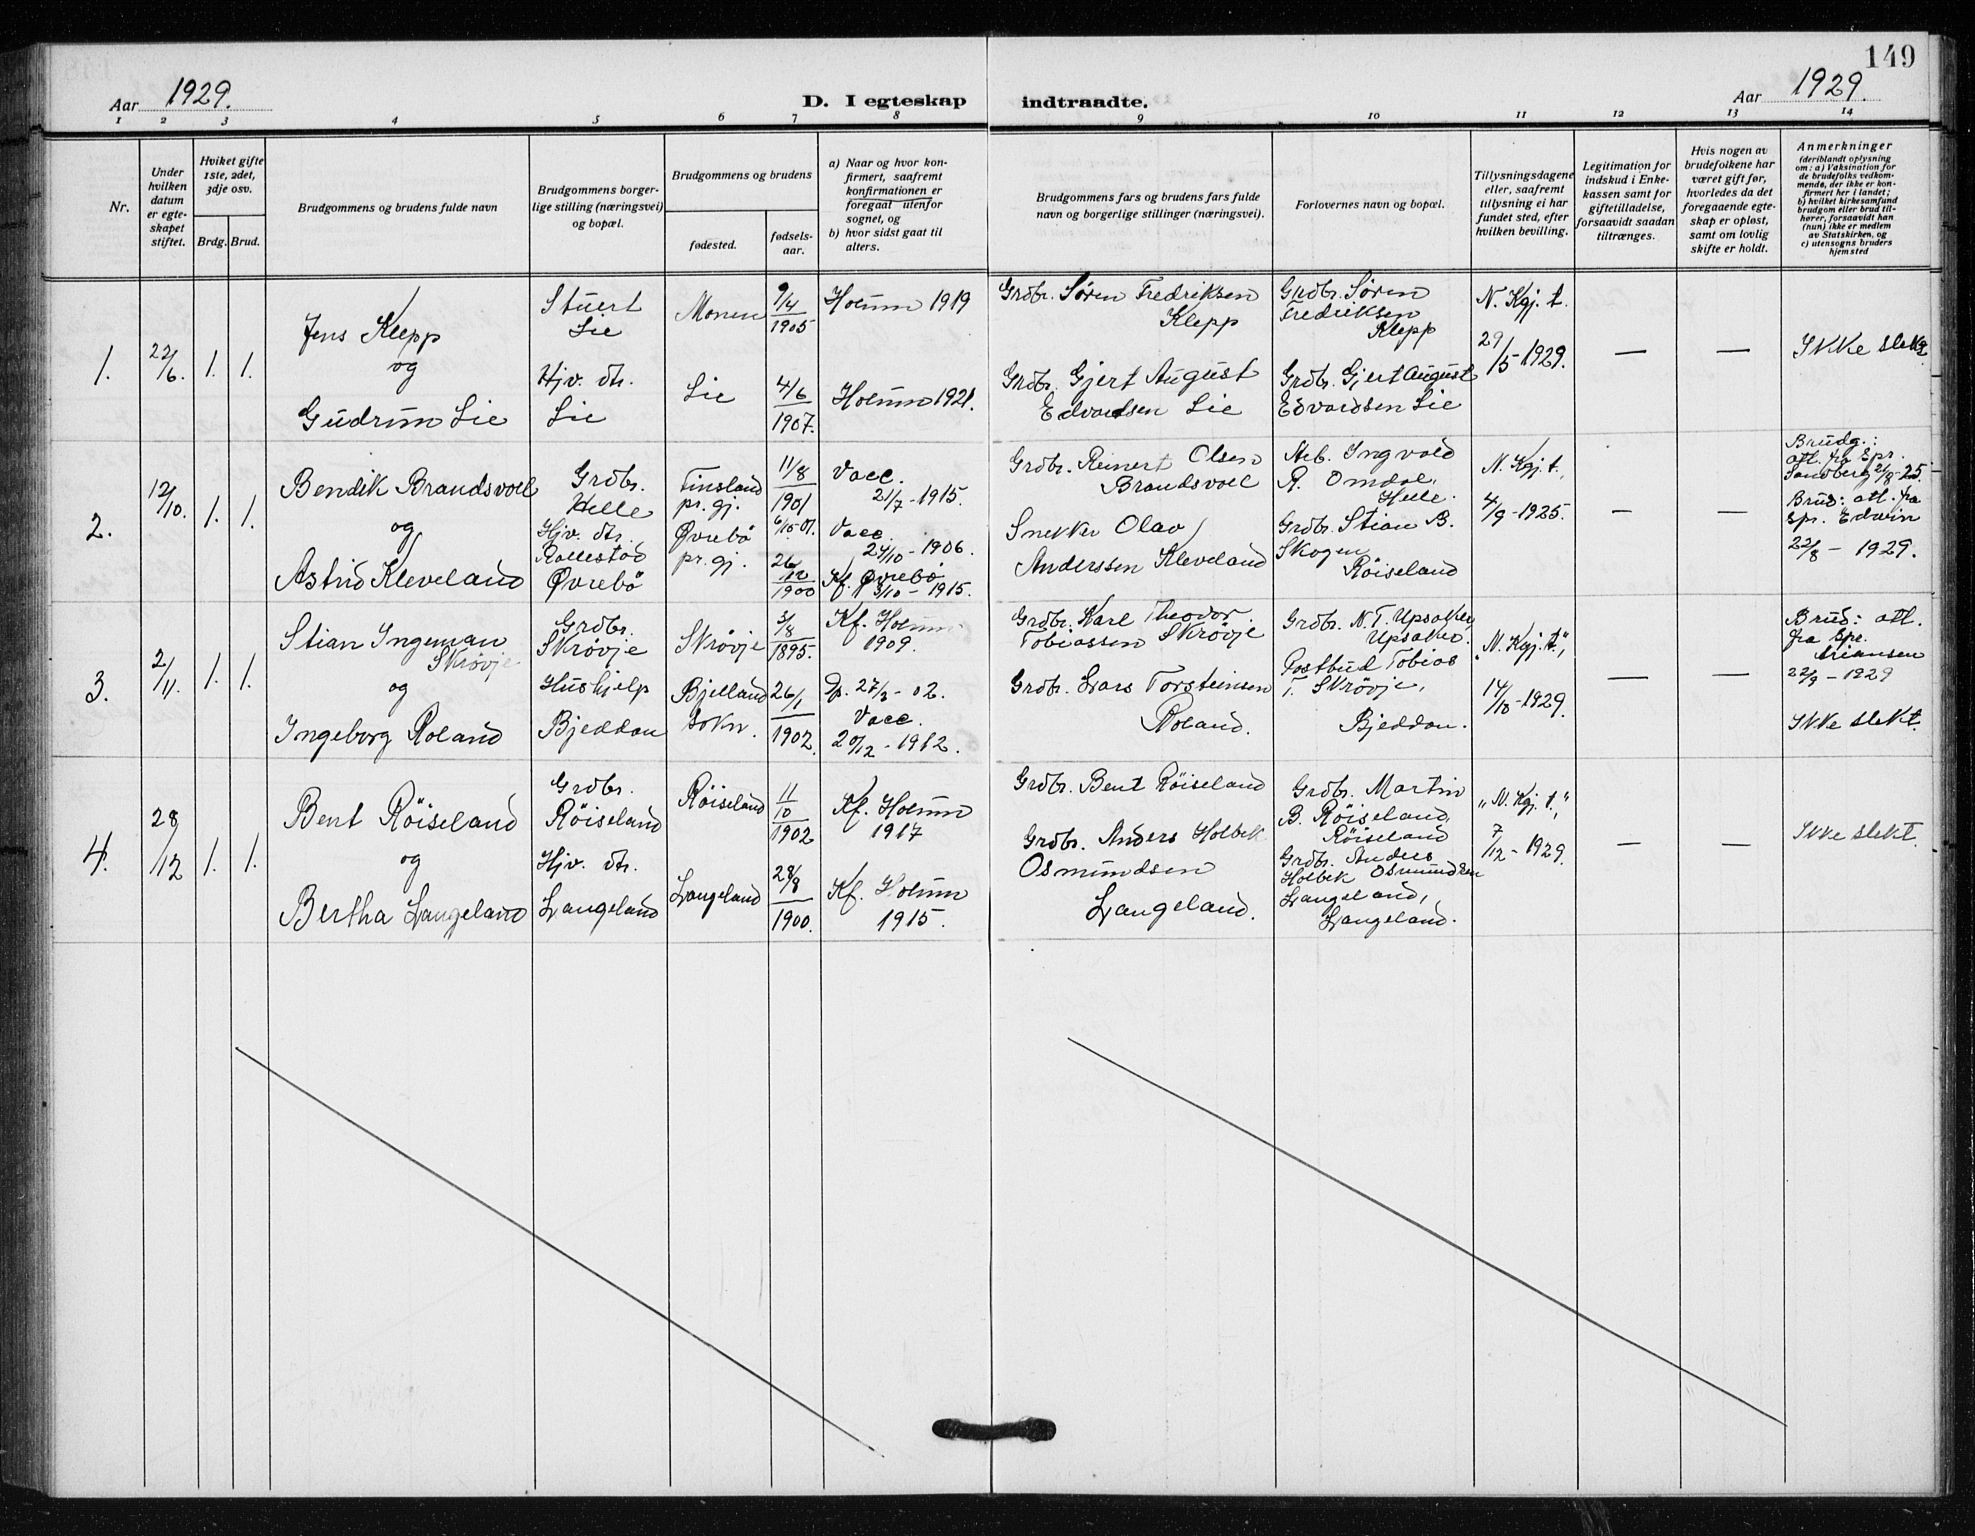 149
Aar 1929.
D. I egteskap indtraadte.
Aar 1929.
1 2 3 4 5 6 7 8 9 10 11 12 13 14
Nr.
Under
hvilken
datum
er egte-
skapet
stiftet.
Hviket gifte
1ste, 2det,
3dje osv.
Brdg. Brud.
Brudgommens og brudens fulde navn
Brudgommens borger-
lige stilling (næringsvei)
og bopæl.
Brudgommens og brudens
fødested.
fødsels-
aar.
a) Naar og hvor kon-
firmert, saafremt
konfirmationen er
foregaaet utenfor
sognet, og
b) hvor sidst gaat til
alters.
Brudgommens fars og brudens fars fulde
navn og borgerlige stillinger (næringsvei).
Forlovernes navn og bopæl.
Tillysningsdagene
eller, saafremt
tillysning ei har
fundet sted, efter
hvilken bevilling.
Legitimation for
indskud i Enke-
kassen samt for
giftetilladelse,
forsaavidt saadan
tiltrænges.
Hvis nogen av
brudefolkene har
været gift før,
hvorledes da det
foregaaende egte-
skap er opløst,
samt om lovlig
skifte er holdt.
Anmerkninger
(deriblandt oplysning
om: a) Vaksination for
de brudefolks vedkom-
mende, der ikke er kon-
firmert her i landet;
b) hvilket kirkesamfund
brudgom eller brud til-
hører, forsaavidt han
(hun) ikke er medlem
av Statskirken, og
c) utensogns bruders
hjemsted
1.
22/6.
1. 1.
Jens Klepp
og
Gudrun Lie
Stuert
Lie
Hjv. dtr.
Lie
Monen
Lie
9/4
1905
4/6
1907.
Holum 1919
Holum 1921.
Grdbr. Søren Fredriksen
Klepp
Grdbr. Gjert August
Edvardsen Lie
Grdbr. Søren
Fredriksen
Klepp
Grdbr. Gjert August
Edvardsen Lie
N. Kgj. t.
29/5-1929.
—
—
Ikke slekt
2.
12/10.
1. 1.
Bendik Brandsvoll
og
Astrid Kleveland
Grdbr.
Helle
Hjv. dtr.
Rollestad
Øvrebø
Finsland
pr. gj.
Øvrebø
pr. gj.
11/8
1901
26/12
1900
Vacc.
21/7-1915.
Vacc.
24/10-1906.
Kf. Øvrebø
3/10-1915.
Grdbr. Reinert Olsen
Brandsvoll
Snekker Olav
Anderssen Kleveland
Arb. Ingvald
R. Omdal,
Helle.
Grdbr. Stian B.
Skogen
Røiseland
N. Kgj. t.
4/9-1925.
—
—
Brudg.:
att. fra Spr.
Sandberg 21/8-25.
Brud: att. fra
Spr. Edwin
22/8-1929.
3.
2/11.
1. 1.
Stian Ingeman
Skrøvje
og
Ingeborg Roland
Grdbr.
Skrøvje
Hushjelp
Bjeddan
Skrøvje
Bjelland
sokn.
3/8
1895.
26/1
1902.
Kf. Holum
1909.
Dp. 27/3-02.
Vacc.
20/12-1912.
Grdbr. Karl Theodor
Tobiassen Skrøvje
Grdbr. Lars Torsteinsen
Roland.
Grdbr. N. T. Upsaker,
Upsaker.
Postbud Tobias
T. Skrøvje,
Bjeddan.
"N. Kgj. t.",
14/10-1929.
—
—
Brud: att.
fra Spr.
22/9-1929
Ikke slekt.
4.
28/12
1. 1.
Bent Røiseland
og
Bertha Langeland
Grdbr.
Røiseland
Hjv. dtr.
Langeland
Røiseland
Langeland
11/10
1902
28/8
1900.
Kf. Holum
1917
Kf. Holum
1915.
Grdbr. Bent Røiseland
Grdbr. Anders Holbek
Osmundsen
Langeland.
Grdbr. Martin
B. Røiseland,
Røiseland
Grdbr. Anders
Holbek Osmundsen
Langeland,
Langeland.
"N. Kgj. t.",
7/12-1929.
—
—
Ikke slekt.